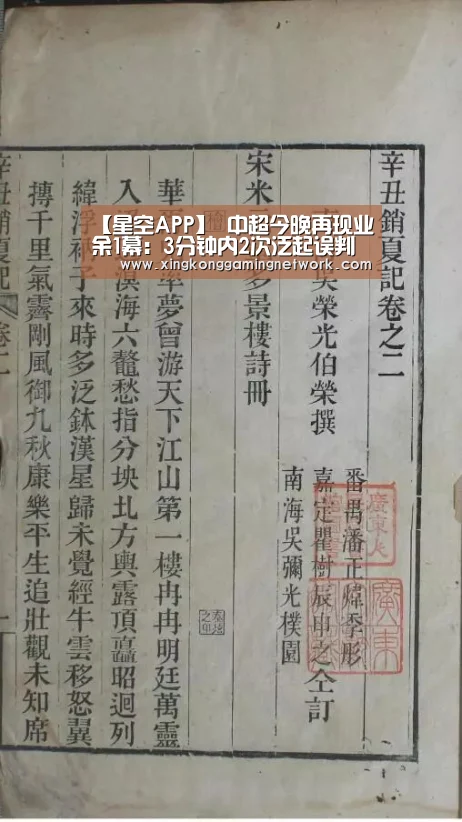 【星空APP】 中超今晚再现业
余1幕：3分钟内2次泛起误判
www.xingkonggamingnetwork.com
辛丑銷夏記卷之二
榮光伯榮撰
番禺潘正煒季彤
嘉定瞿樹辰申之仝訂
南海吳彌光樸園
宋米多景樓詩冊
華夢曾游天下江山第一樓冉冉明廷萬靈
入溟海六鼇愁指分坱圠方輿露頂矗昭迴列
緯浮子來時多泛鉢漢星歸未覺經牛雲移怒翼
摶千里氣霽剛風御九秋康樂平生追壯觀未知席
辛丑銷夏記 卷二
廣東